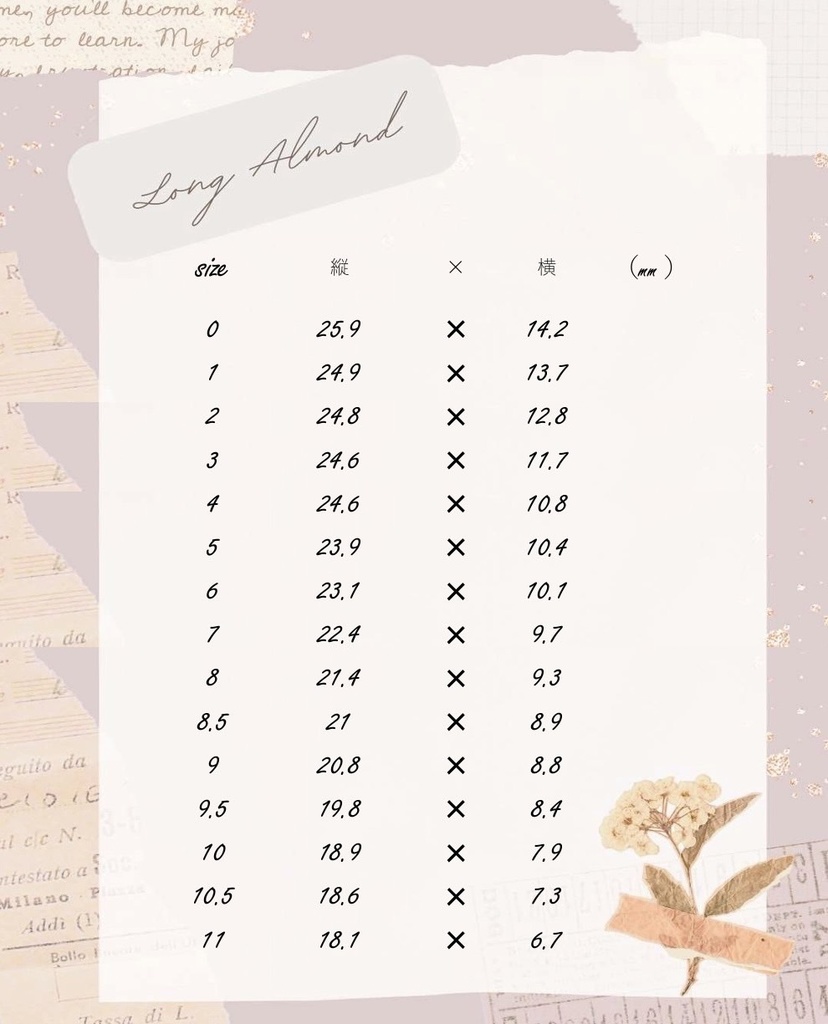 men, you'll become mo
ore to learn. My jo
Long Almond
size 縦 × 横 (mm)
0 25.9 × 14.2
1 24.9 × 13.7
2 24.8 × 12.8
3 24.6 × 11.7
4 24.6 × 10.8
5 23.9 × 10.4
6 23.1 × 10.1
7 22.4 × 9.7
8 21.4 × 9.3
8.5 21 × 8.9
9 20.8 × 8.8
9.5 19.8 × 8.4
10 18.9 × 7.9
10.5 18.6 × 7.3
11 18.1 × 6.7
R
R
R
eguito da
eguito da
al c/c N.
ntestato a Soc.
Milano - Piazza
Addì (1)
Bollo
Tassa di L.